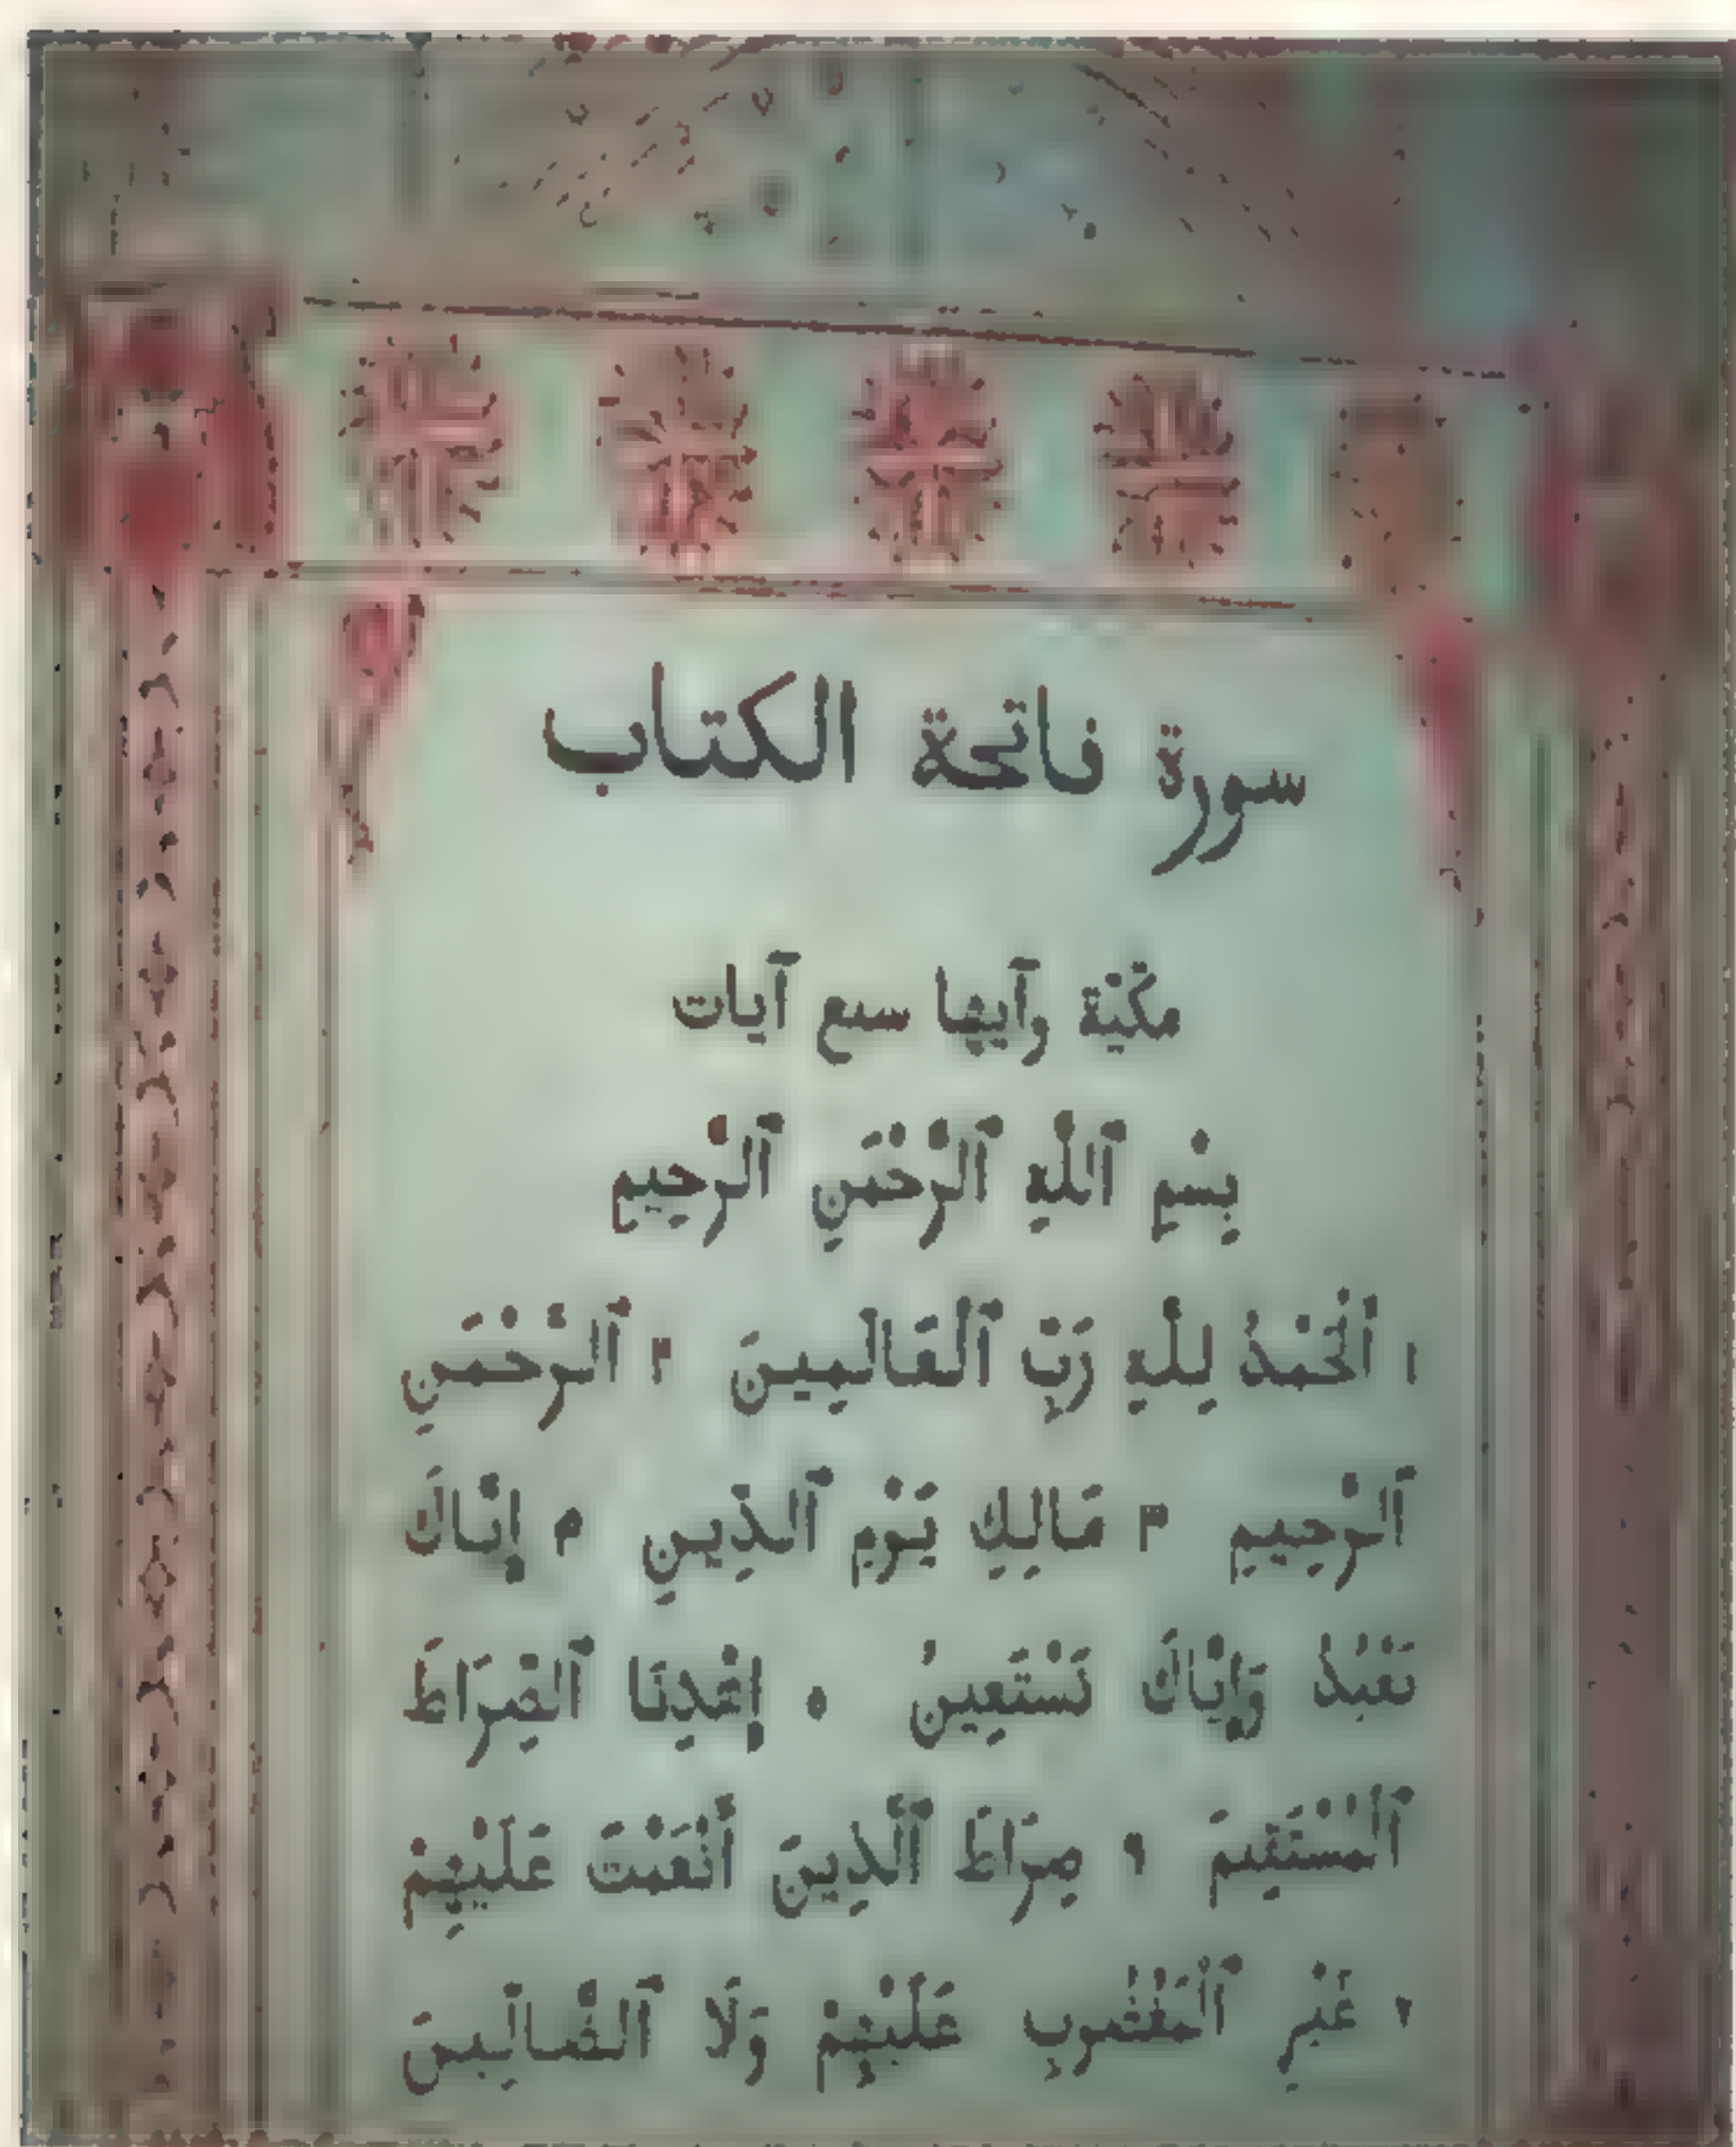 سورة فاتحة الكتاب
مكّيّة وآيها سبع آيات
بِسْمِ ٱللّٰهِ ٱلرَّحْمَنِ ٱلرَّحِيمِ
١ ٱلْحَمْدُ لِلّٰهِ رَبِّ ٱلْعَالَمِينَ ٢ ٱلرَّحْمَنِ
ٱلرَّحِيمِ ٣ مَالِكِ يَوْمِ ٱلدِّينِ ۴ إِيَّاكَ
نَعْبُدُ وَإِيَّاكَ نَسْتَعِينُ ٥ إِهْدِنَا ٱلصِّرَاطَ
ٱلْمُسْتَقِيمَ ٦ صِرَاطَ ٱلَّذِينَ أَنْعَمْتَ عَلَيْهِمْ
٧ غَيْرِ ٱلْمَغْضُوبِ عَلَيْهِمْ وَلَا ٱلضَّالِّينَ